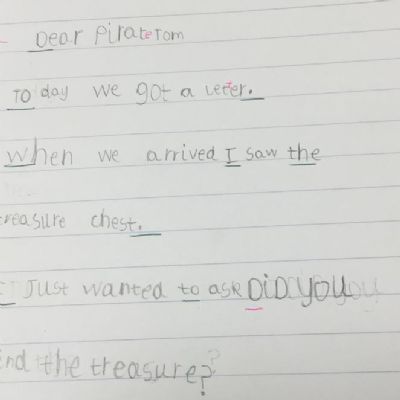 Dear Piratetom
To day we got a leter.
When we arrived I saw the
treasure chest.
I Just wanted to ask DiD you
find the treasure?